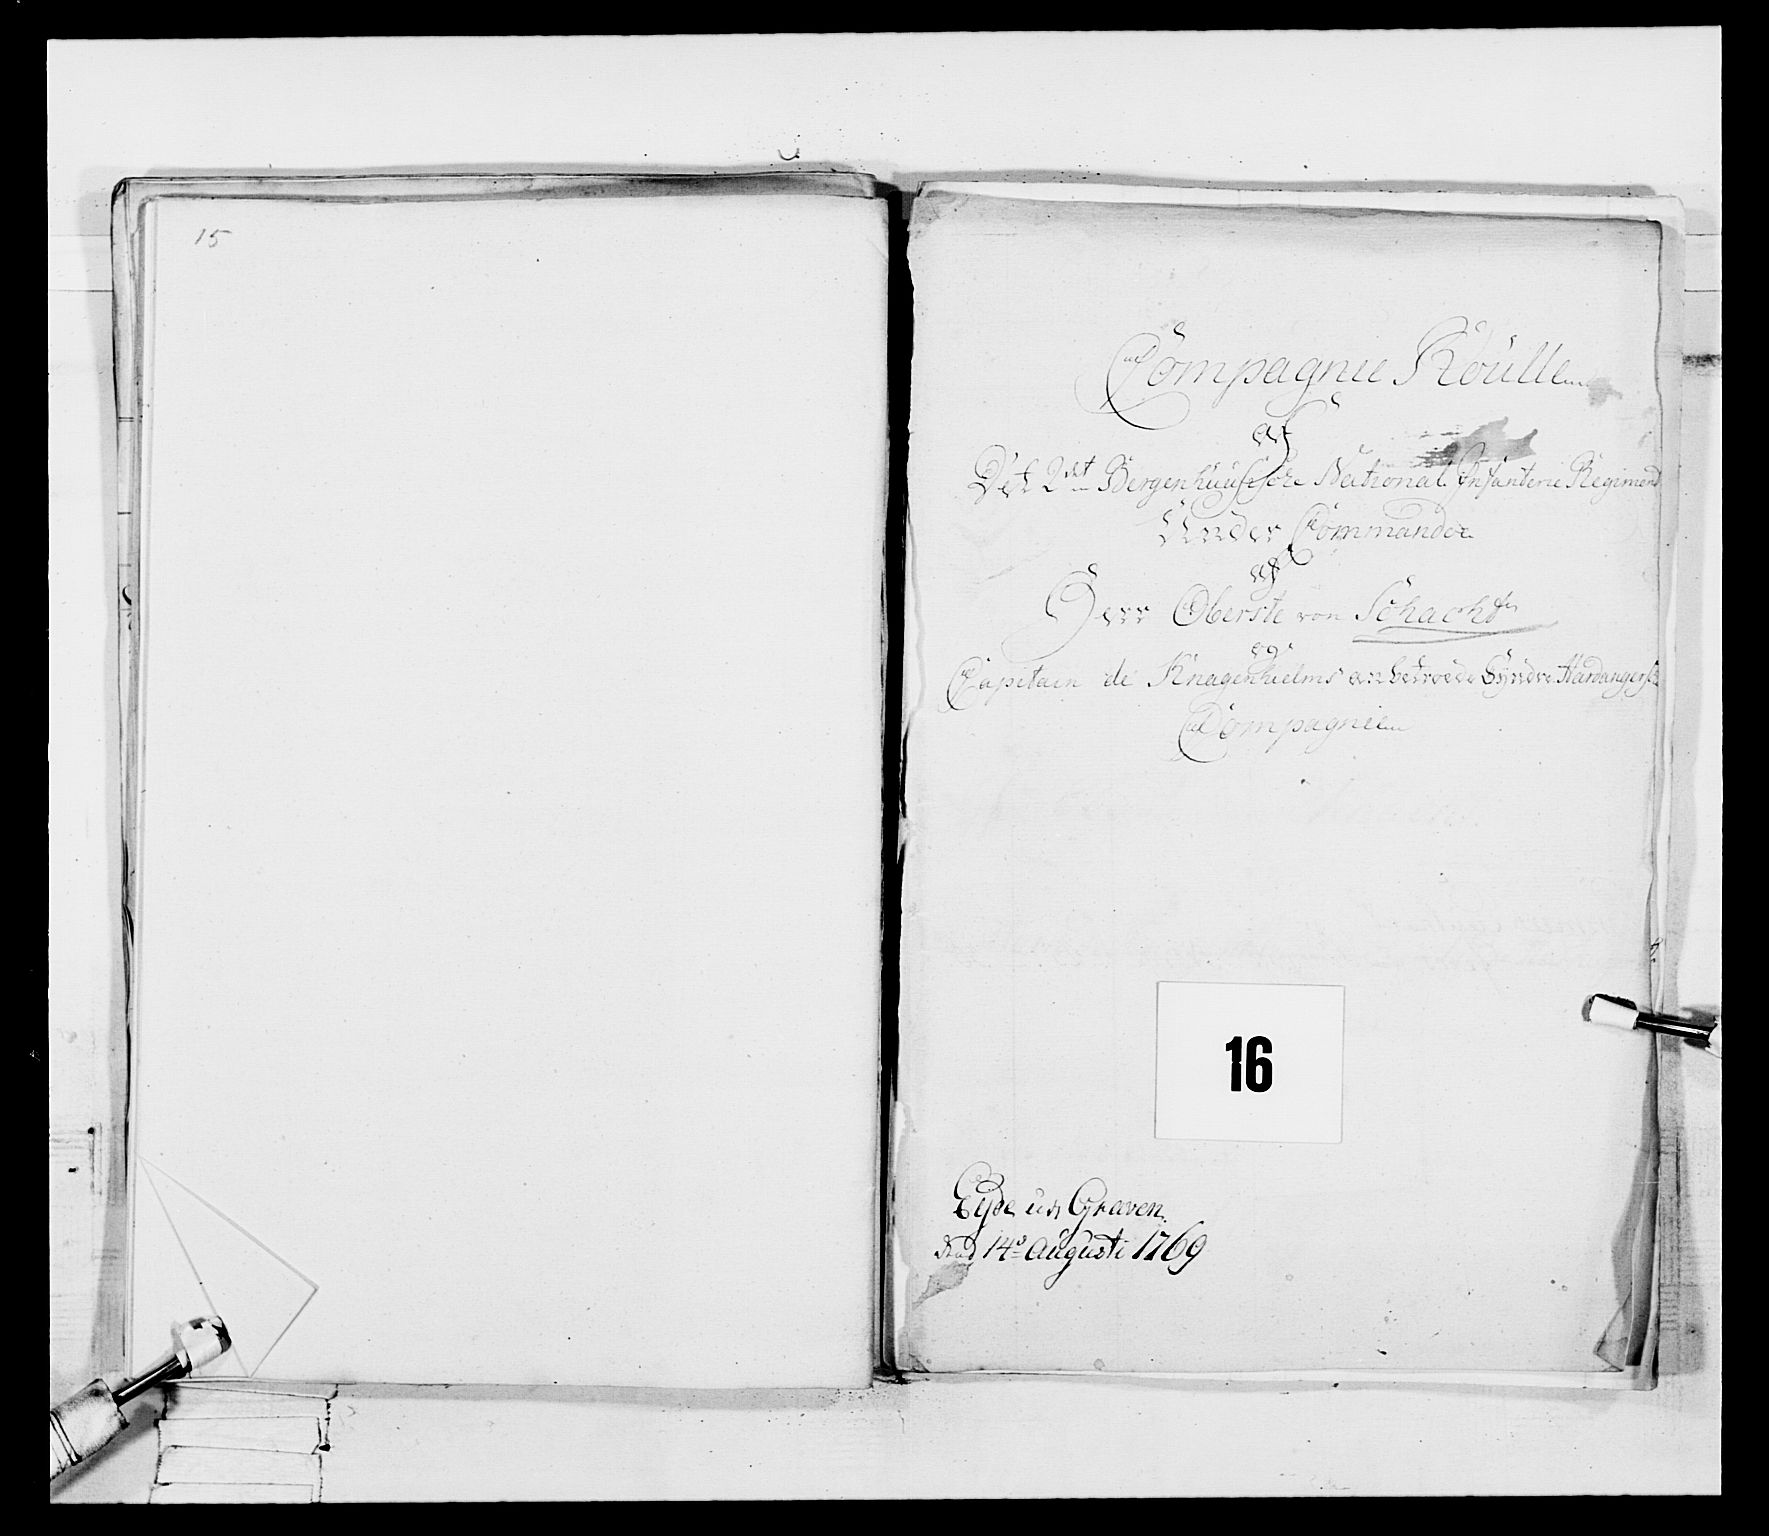 15
Compagnie Roulle
af
Det 2det Bergenhuusische National Infanterie Regiment
Under Commando
af
Herr Oberste von Schacht
og
Capitain de Knagenhielms anbetroede Syndre Hardangerske
Compagnie
16
Eyde udj Graven
den 14de Augusti 1769